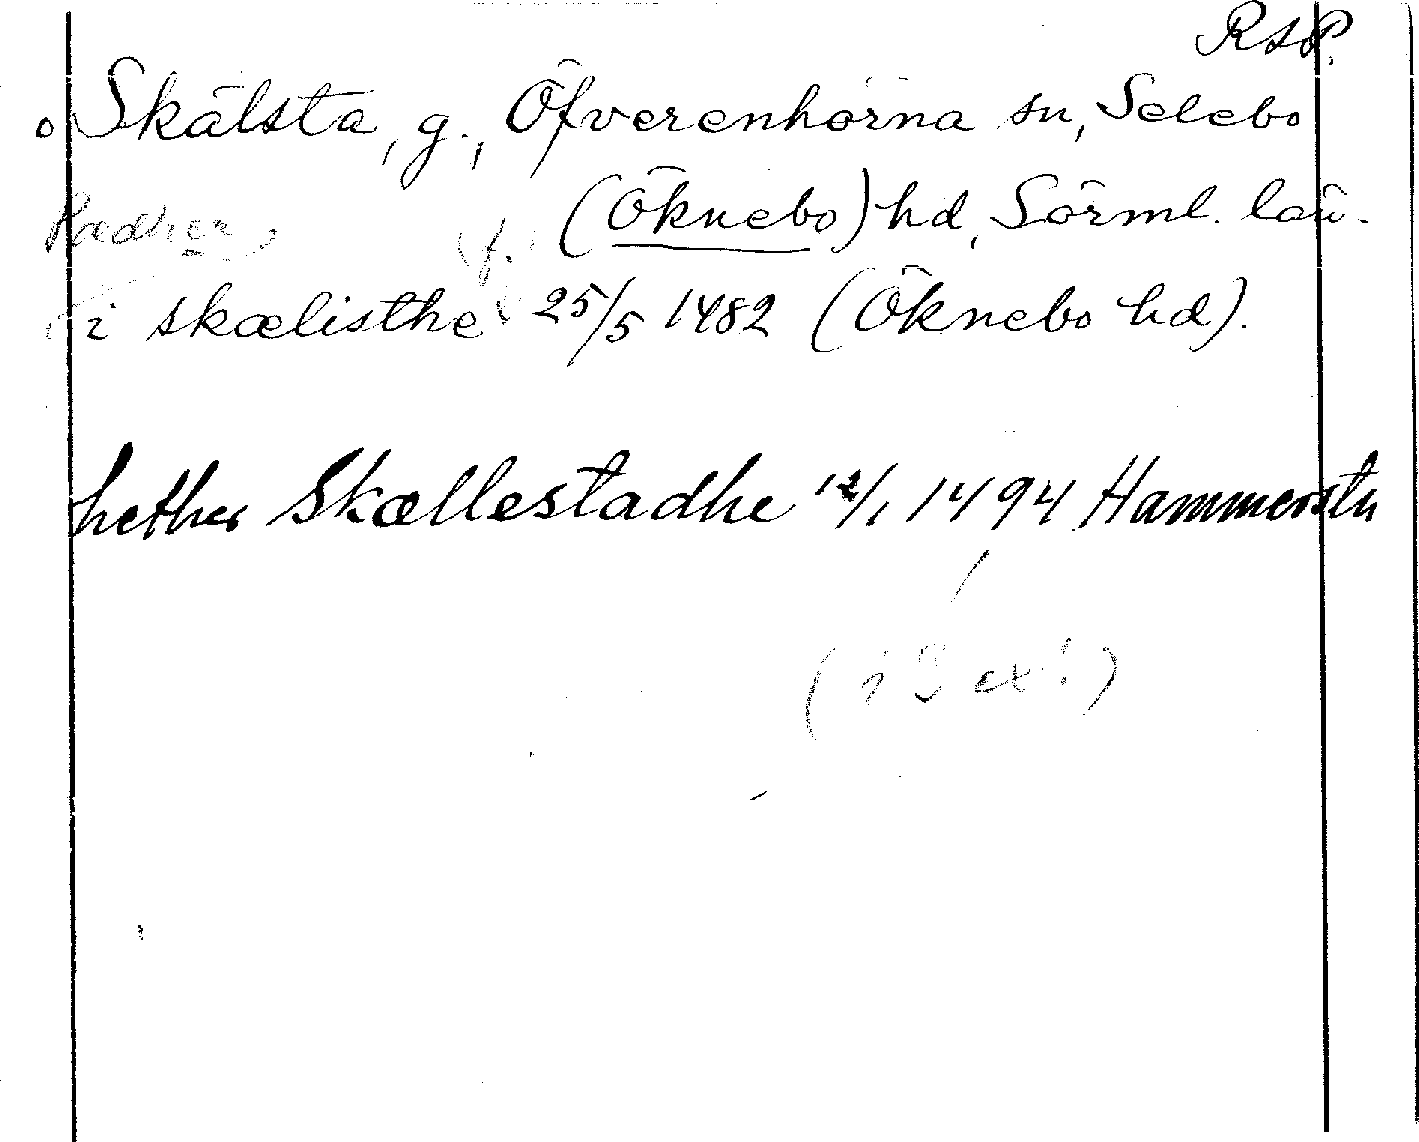 RAP.
o Skälsta, g., Öfverenhörna sn, Selebo
(Öknebo) hd, Sörml. län.
Pædher,
i skælisthe 25/5 1482 (Öknebo hd).
hether Skællestadhe 12/1 1494 Hammersta
(i 3 ex!)